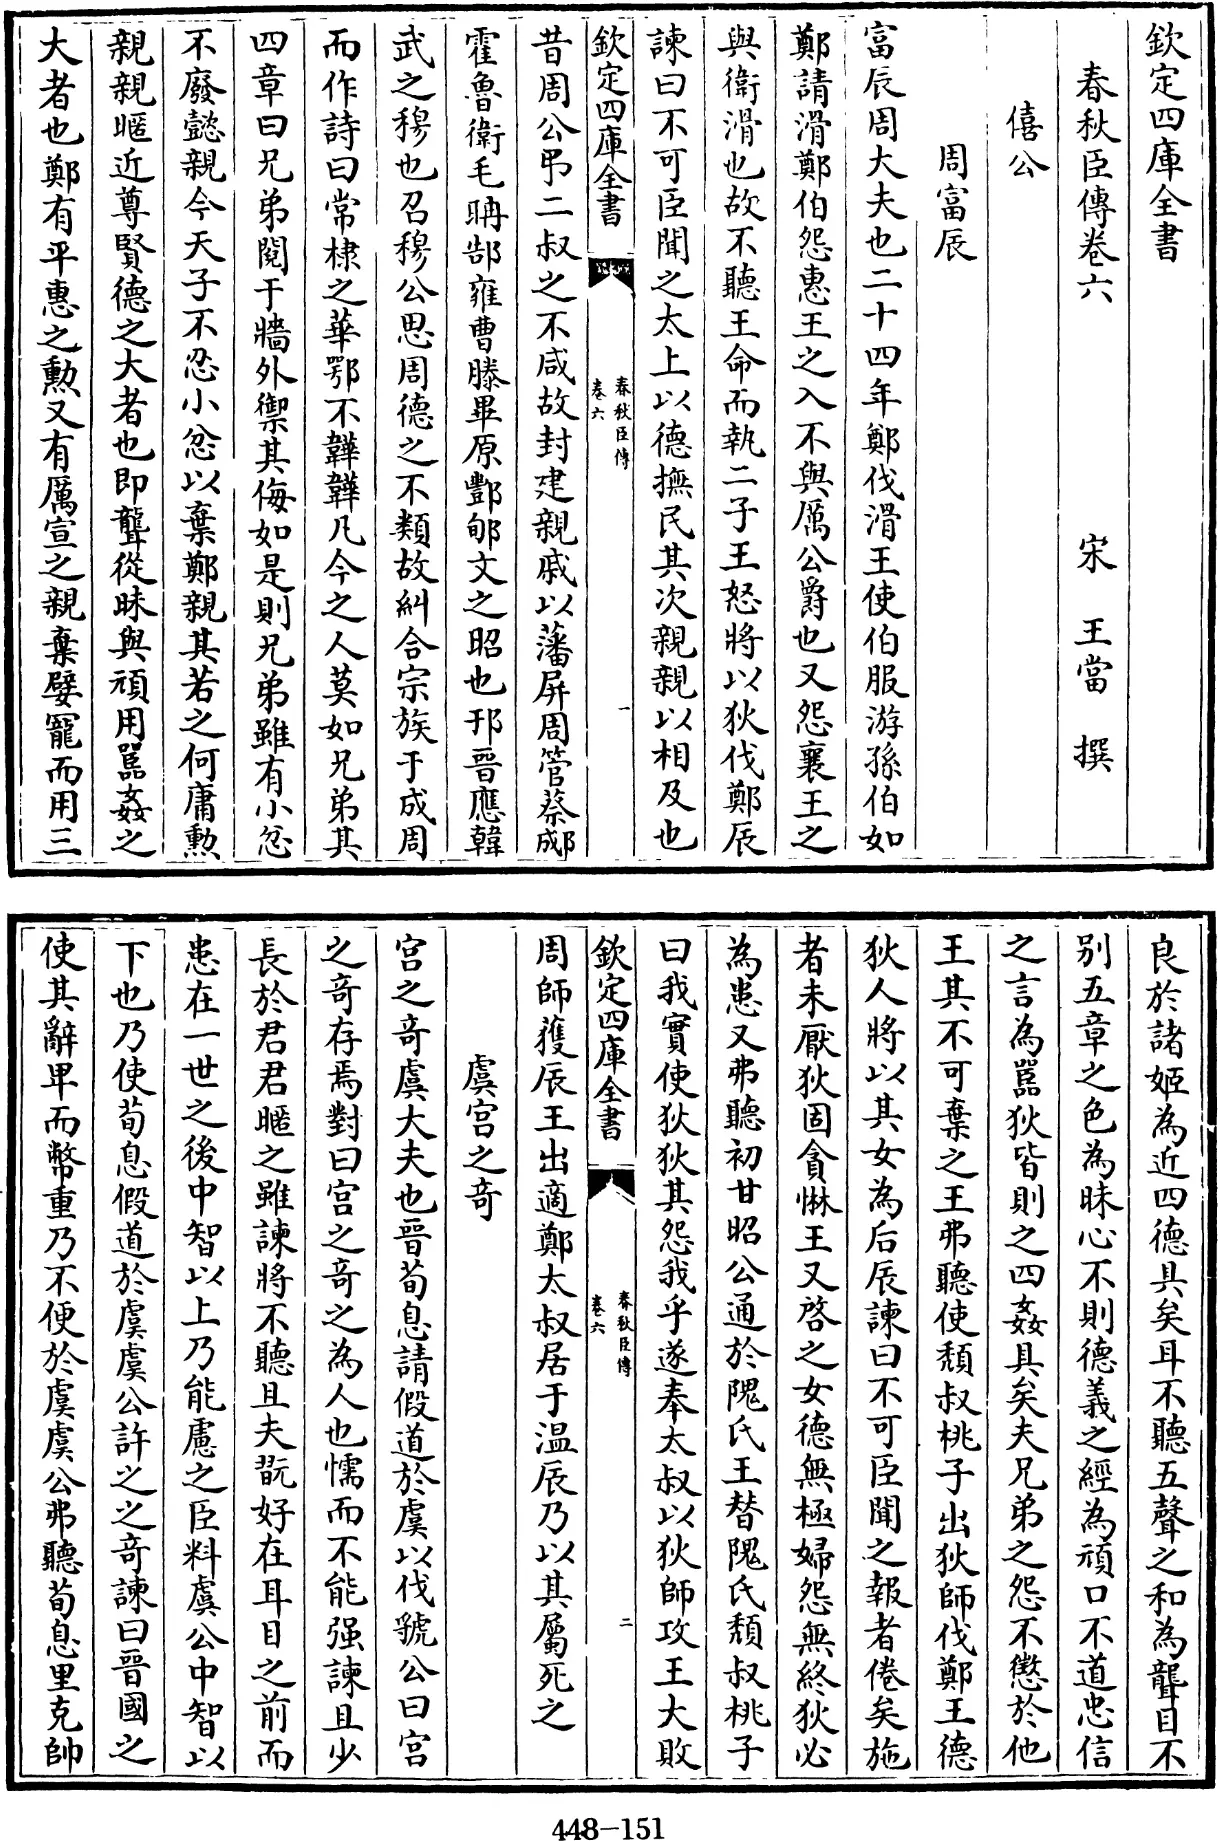 欽定四庫全書
春秋臣傳卷六　宋　王當　撰
僖公
周富辰
富辰周大夫也二十四年鄭伐滑王使伯服游孫伯如
鄭請滑鄭伯怨惠王之入不與厲公爵也又怨襄王之
與衞滑也故不聽王命而執二子王怒將以狄伐鄭辰
諫曰不可臣聞之太上以德撫民其次親親以相及也
欽定四庫全書
春秋臣傳
卷六
一
昔周公弔二叔之不咸故封建親戚以藩屏周管蔡郕
霍魯衞毛聃郜雍曹滕畢原酆郇文之昭也邘晉應韓
武之穆也召穆公思周德之不類故糾合宗族于成周
而作詩曰常棣之華鄂不韡韡凡今之人莫如兄弟其
四章曰兄弟鬩于牆外禦其侮如是則兄弟雖有小忿
不廢懿親今天子不忍小忿以棄鄭親其若之何庸勲
親親暱近尊賢德之大者也即聾從昧與頑用嚚姦之
大者也鄭有平惠之勲又有厲宣之親棄嬖寵而用三
良於諸姬為近四德具矣耳不聽五聲之和為聾目不
别五章之色為昧心不則德義之經為頑口不道忠信
之言為嚚狄皆則之四姦具矣夫兄弟之怨不懲於他
王其不可棄之王弗聽使頽叔桃子出狄師伐鄭王德
狄人將以其女為后辰諫曰不可臣聞之報者倦矣施
者未厭狄固貪惏王又啓之女德無極婦怨無終狄必
為患又弗聽初甘昭公通於隗氏王替隗氏頽叔桃子
曰我實使狄狄其怨我乎遂奉太叔以狄師攻王大敗
欽定四庫全書
春秋臣傳
卷六
二
周師獲辰王出適鄭太叔居于温辰乃以其屬死之
虞宮之奇
宮之奇虞大夫也晉荀息請假道於虞以伐虢公曰宮
之奇存焉對曰宮之奇之為人也懦而不能强諫且少
長於君君暱之雖諫將不聽且夫翫好在耳目之前而
患在一世之後中智以上乃能慮之臣料虞公中智以
下也乃使荀息假道於虞虞公許之之奇諫曰晉國之
使其辭卑而幣重乃不便於虞虞公弗聽荀息里克帥
448-151